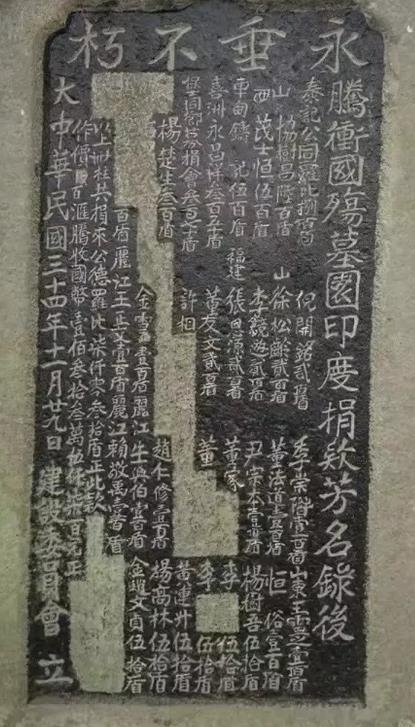 永垂不朽
騰衝國殤墓園印度捐欵芳名錄後
泰記公司羅比捌百盾 倪開銘貳百盾 李宗階壹百盾 山東王雲芝壹百盾
山 協樹昌陞百盾 山 徐松齡貳百盾 董法道壹百盾 恒 俗壹百盾
西 茂士恒伍百盾 李鏡遊貳百盾 尹宗本壹百盾 楊樹吾伍拾盾
鑄記伍百盾 福建 張 貳百盾 黃家 李 伍拾盾
喜洲永昌祥叁百 黃友文貳百盾 董 李 伍拾盾
許相 黃連升伍拾盾
楊 叁百盾 趙仁修壹百盾 楊高林伍拾盾
金 壹百盾 麗江牛興伯壹百盾 金耀文 伍拾盾
百盾 麗江王 壹百盾 麗江賴敬禹壹百盾
以上 共捐來公德羅比柒仟零叁拾盾正此欵
作價 百 滙騰收國幣壹佰叁拾叁萬 仟柒百元正
大中華民國三十四年十一月廿九日 建設委員會 立